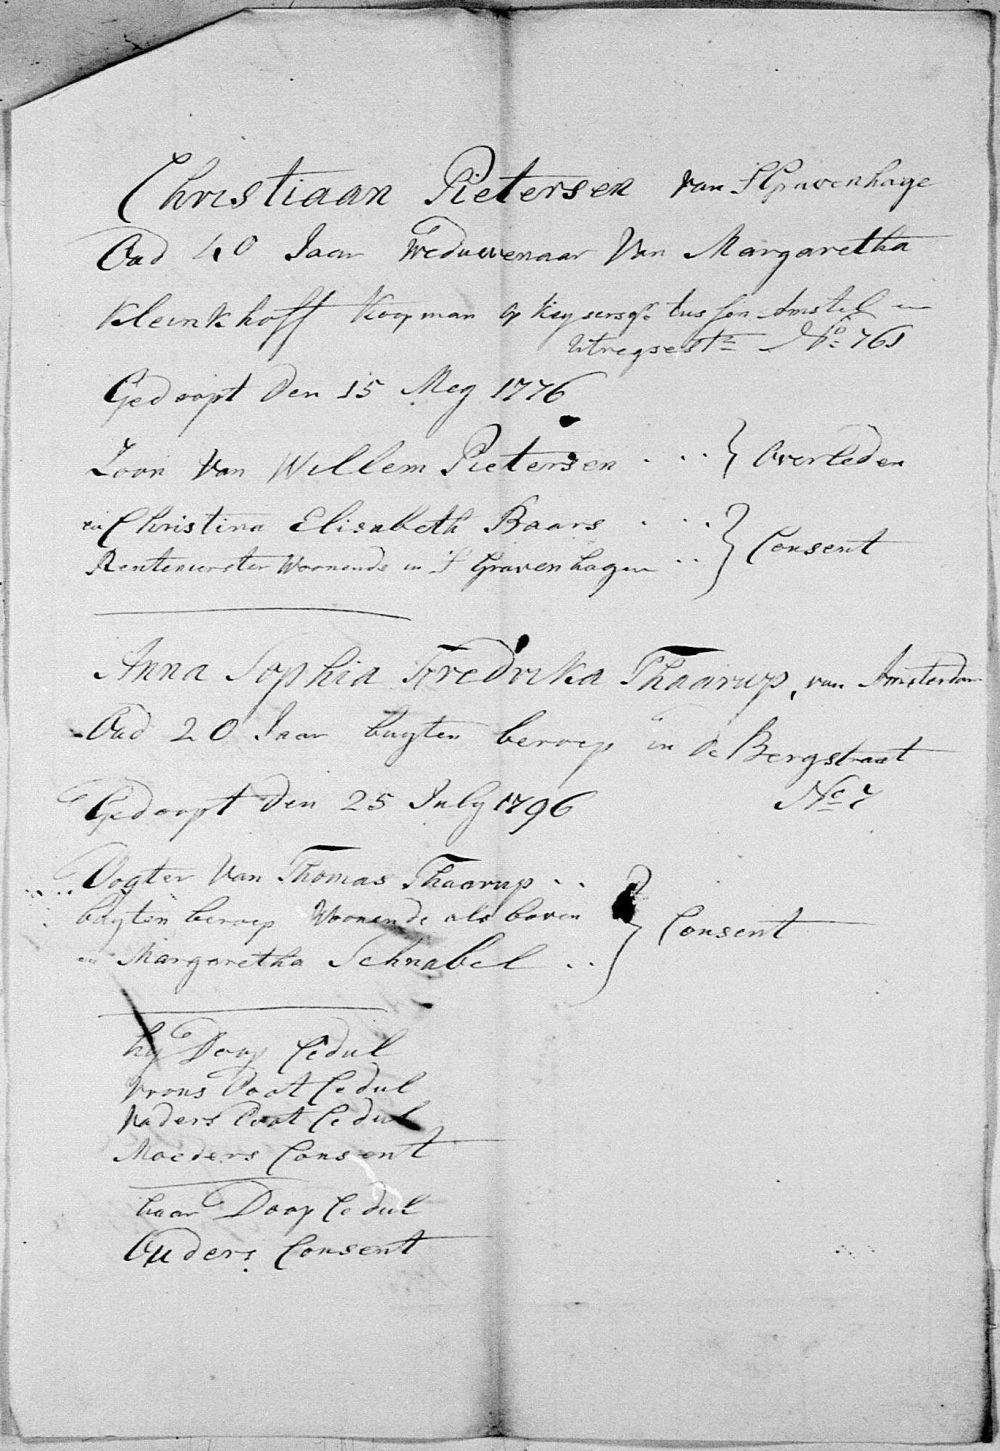 Christiaan Pietersen van SGravenhage
Oud 40 Jaar Weduwenaar Van Margaretha
Kleinkhoff Koopman op Keysersgr. tussen Amstel en
Utregsestr. No. 761
Gedoopt Den 15 Mey 1776
Zoon Van Willem Pietersen . . . } Overleden
en Christina Elisabeth Baars . . .
Rentenierster Woonende in S Gravenhagen . . } Consent
Anna Sophia Fredrika Thaarup, van Amsterdam
Oud 20 Jaar buyten beroep in de Bergstraat
Gedoopt Den 25 July 1796 No. 7
Dogter Van Thomas Thaarup . .
buyten beroep Woonende als boven } Consent
en Margaretha Schnabel . .
hy Doop Cedul
Vrous Doot Cedul
Vaders Doot Cedul
Moeders Consent
haar Doop Cedul
Ouders Consent